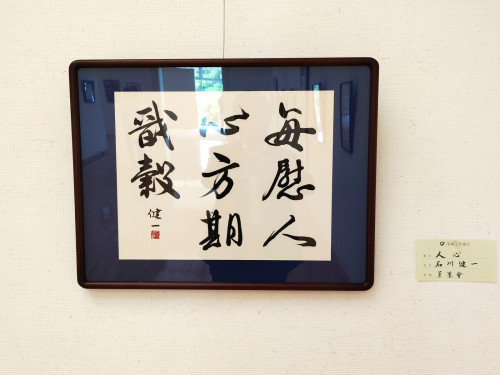 毎慰人
心方期
戩穀
健一
人心
石川健一